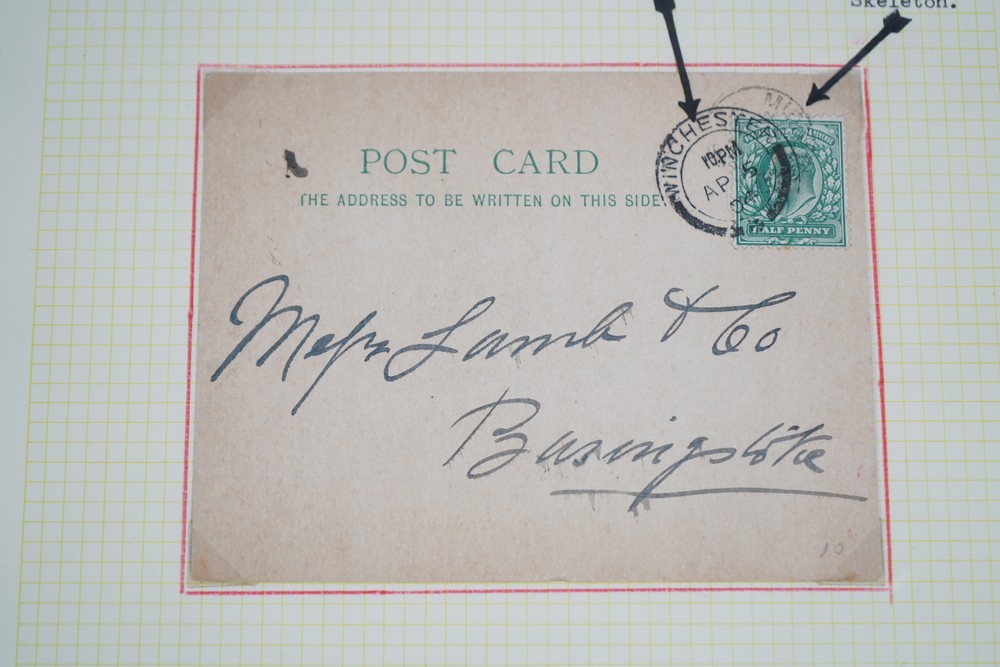 Skeleton.
POST CARD
THE ADDRESS TO BE WRITTEN ON THIS SIDE.
WINCHESTER
10.PM
AP 5
04
HALF PENNY
Messrs Lamb & Co
Basingstoke
10